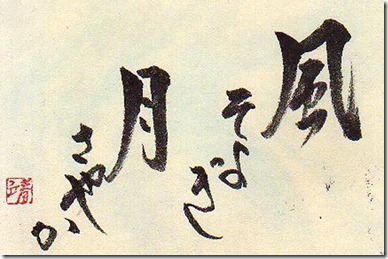 風
そよぎ
月
さやか
靖